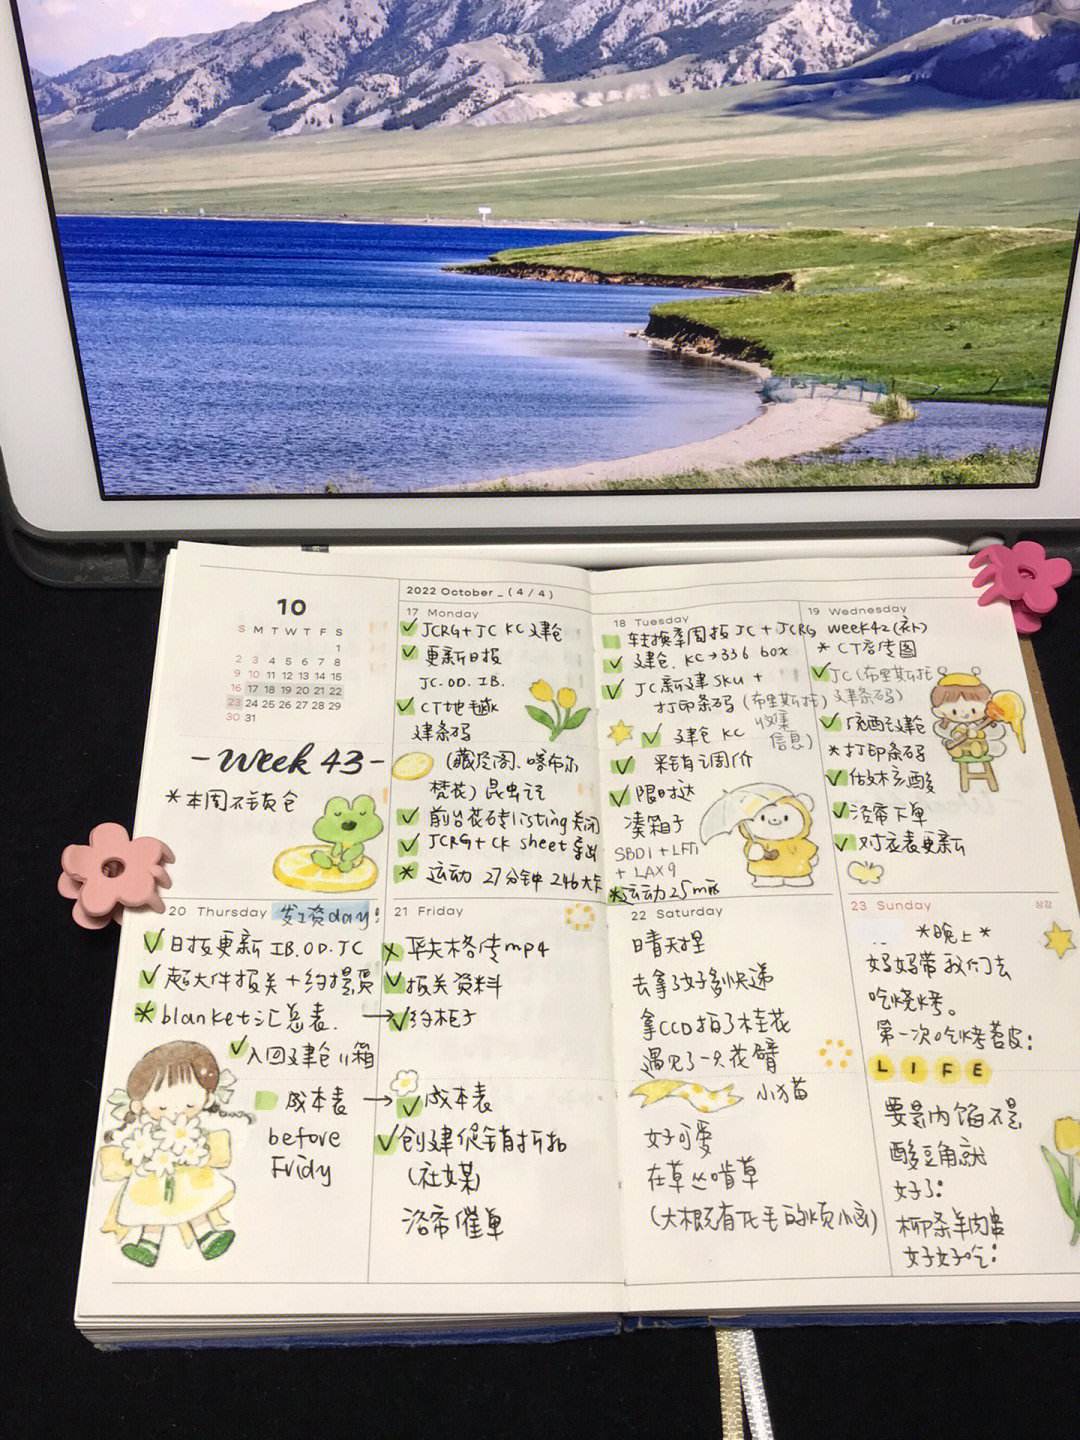 10
S M T W T F S
1
2 3 4 5 6 7 8
9 10 11 12 13 14 15
16 17 18 19 20 21 22
23 24 25 26 27 28 29
30 31
-Week 43-
*本周不锁仓
2022 October _ ( 4 / 4 )
17 Monday
JCRG+JC KC建仓
更新日报
JC.OD.IB.
CT地毯
建条码
(藏经阁、喀布尔
梵花) 昆虫记
前台花砖listing关闭
JCRG+CK sheet
运动 27分钟 246大卡
18 Tuesday
转换率周报JC+JCRG week42(补)
建仓.KC→336 box
JC新建SKU+
打印条码(布里斯托
收集
信息)
建仓 KC
来销调价
限时达
凑箱子
SBD1+LFT1
+LAX9
*运动25min
19 Wednesday
*CT 图
JC(布里斯托
建条码)
建仓
*打印条码
做
洛帝下单
对 表更新
20 Thursday 发工资day!
日报更新IB.OD.JC
超大件报关+约提货
blanket汇总表.
入回建仓11箱
成本表
before
Fridy
21 Friday
平夫格传mp4
报关资料
约柜子
成本表
创建促销折扣
(社媒)
洛帝催单
22 Saturday
晴天捏
去拿了好多快递
拿CCD拍了桂花
遇见了一只花臂
小猫
好可爱
在草丛啃草
23 Sunday
*晚上*
妈妈带我们去
吃烧烤。
第一次吃烤苕皮:
LIFE
要是内馅不是
酸豆角就
好了:
柳条羊肉串
好好吃: